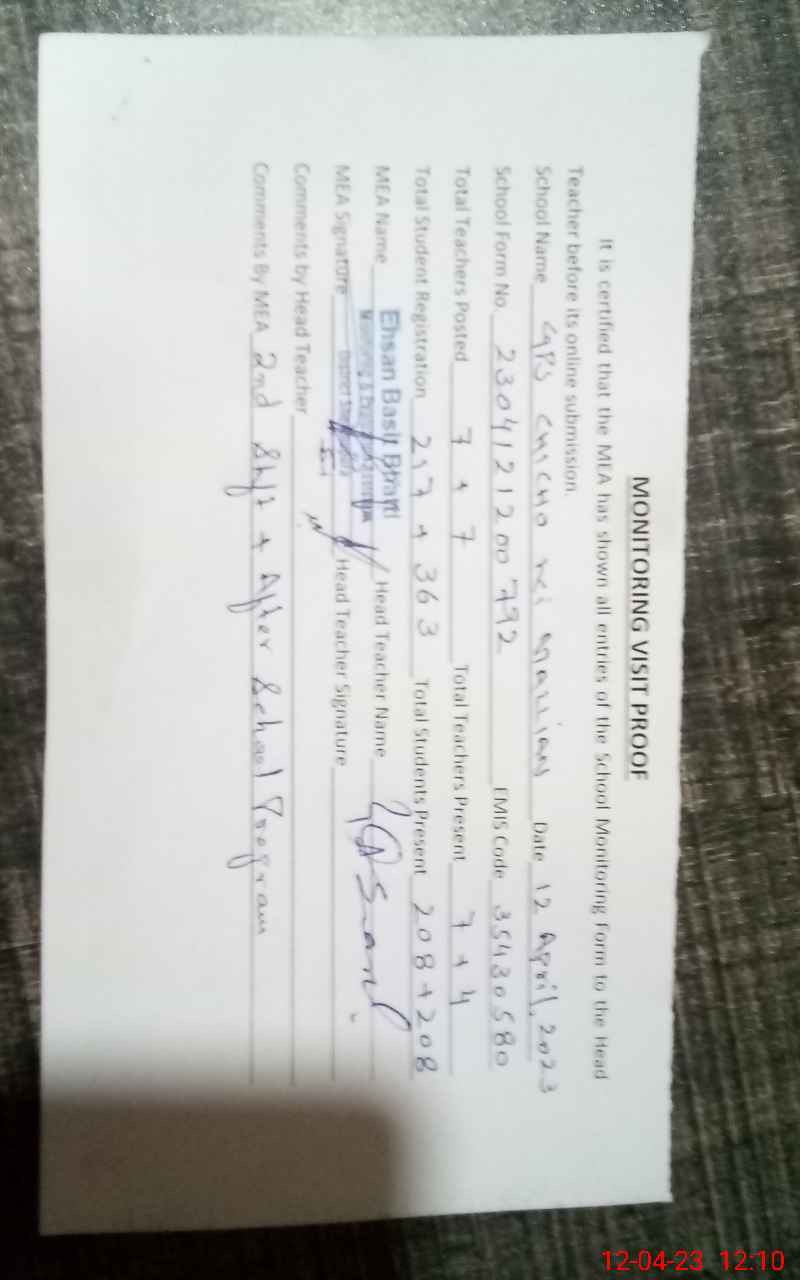 MONITORING VISIT PROOF
It is certified that the MEA has shown all entries of the School Monitoring Form to the Head
Teacher before its online submission.
School Name GPS CHICHO Mallians Date 12 April, 2023
School Form No. 2304121200792 EMIS Code 35430580
Total Teachers Posted 7 + 7 Total Teachers Present 7 + 4
Total Student Registration 217 + 363 Total Students Present 208 + 208
MEA Name Ehsan Basit Bhatti Head Teacher Name
Monitoring &
MEA Signature District Head Teacher Signature
Comments by Head Teacher
Comments By MEA 2nd Shift + After School Program
12-04-23 12:10